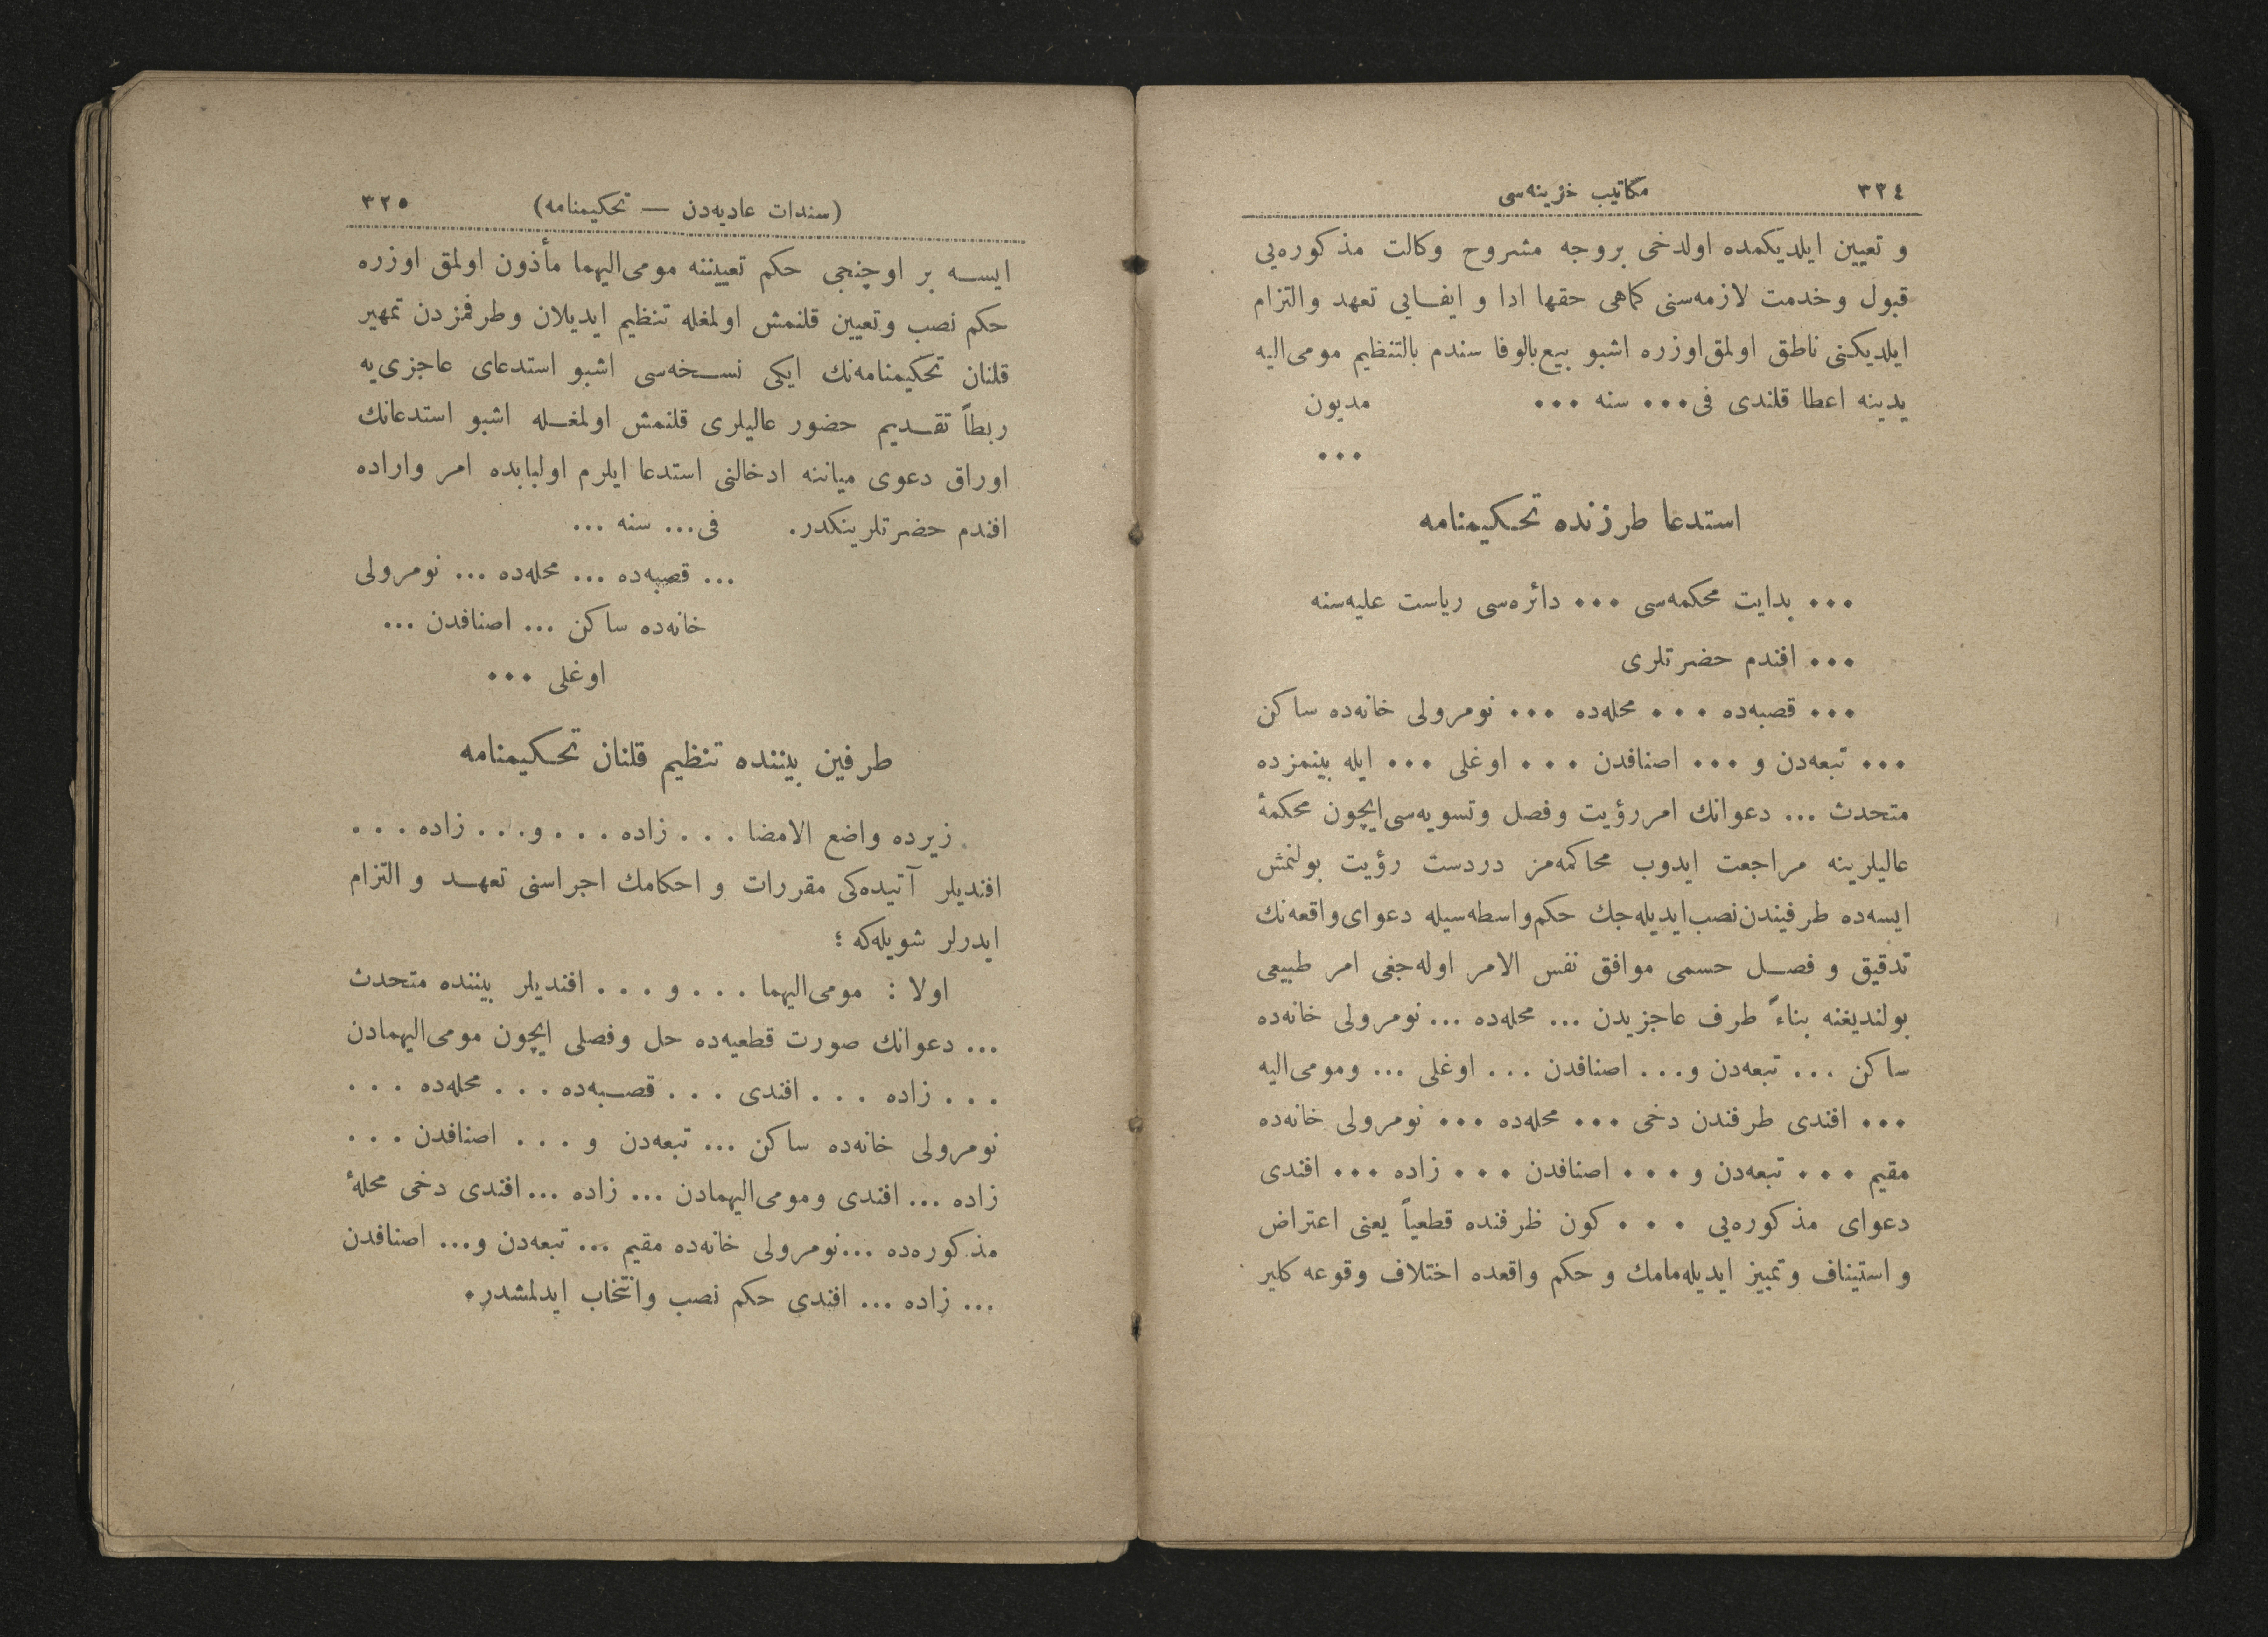 ٣٣٤ مكاتيب خزينه‌سی
و تعيين ايلديكمده اولدخی بروجه مشروح وكالت مذكوره‌يی
قبول وخدمت لازمه‌سنی كماهی حقها ادا و ايفايی تعهد والتزام
ايلديكنی ناطق اولمق اوزره اشبو بيع بالوفا سندم بالتنظيم مومی‌اليه
يدينه اعطا قلندی فی... سنه ... مديون
...
استدعا طرزنده تحكيمنامه
... بدايت محكمه‌سی ... دائره‌سی رياست عليه‌سنه
... افندم حضرتلری
... قصبه‌ده ... محله‌ده ... نومرولی خانه‌ده ساكن
... تبعه‌دن و ... اصنافدن ... اوغلی ... ايله بينمزده
متحدث ... دعوانك امر رؤيت وفصل وتسويه‌سی‌ايچون محكمهٔ
عاليلرينه مراجعت ايدوب محاكمه‌مز دردست رؤيت بولنمش
ايسه‌ده طرفيندن نصب ايديله‌جك حكم واسطه‌سيله دعوای واقعه‌نك
تدقيق و فصل حسمی موافق نفس الامر اوله‌جغی امر طبيعی
بولنديغنه بناءً طرف عاجزيدن ... محله‌ده ... نومرولی خانه‌ده
ساكن ... تبعه‌دن و... اصنافدن ... اوغلی ... ومومی‌اليه
... افندی طرفندن دخی ... محله‌ده ... نومرولی خانه‌ده
مقيم ... تبعه‌دن و ... اصنافدن ... زاده ... افندی
دعوای مذكوره‌يی ... كون ظرفنده قطعياً يعنی اعتراض
و استيناف وتمييز ايديله‌مامك و حكم واقعده اختلاف وقوعه كلير
(سندات عاديه‌دن — تحكيمنامه) ٣٢٥
ايسه بر اوچنجی حكم تعييننه مومی‌اليهما مأذون اولمق اوزره
حكم نصب وتعيين قلنمش اولمغله تنظيم ايديلان وطرفمزدن تمهير
قلنان تحكيمنامه‌نك ايكی نسخه‌سی اشبو استدعای عاجزی‌يه
ربطاً تقديم حضور عاليلری قلنمش اولمغله اشبو استدعانك
اوراق دعوی ميانه ادخالنی استدعا ايلرم اولبابده امر واراده
افندم حضرتلرينكدر. فی... سنه ...
... قصبه‌ده ... محله‌ده ... نومرولی
خانه‌ده ساكن ... اصنافدن ...
اوغلی ...
طرفين بيننده تنظيم قلنان تحكيمنامه
زيرده واضع الامضا ... زاده ... و... زاده ...
افنديلر آتيده‌كی مقررات و احكامك اجراسنی تعهد و التزام
ايدرلر شويله‌كه ؛
اولا : مومی‌اليهما ... و ... افنديلر بيننده متحدث
... دعوانك صورت قطعيه‌ده حل وفصلی ايچون مومی‌اليهمادن
... زاده ... افندی ... قصبه‌ده ... محله‌ده ...
نومرولی خانه‌ده ساكن ... تبعه‌دن و ... اصنافدن ...
زاده ... افندی ومومی‌اليهمادن ... زاده ... افندی دخی محلهٔ
مذكوره‌ده ... نومرولی خانه‌ده مقيم ... تبعه‌دن و... اصنافدن
... زاده ... افندی حكم نصب وانتخاب ايدلمشدر.